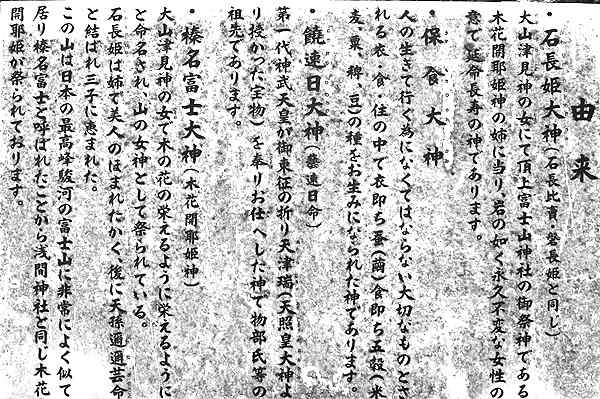 由来
・石長姫大神(石長比賣・磐長姫と同じ)
大山津見神の女にて頂上富士山神社の御祭神である
木花開耶姫神の姉に当り、岩の如く永久不変な女性の
意で延命長寿の神であります。
・保食大神
人の生きて行く為になくてはならない大切なものとさ
れる衣・食・住の中で衣即ち蚕(繭)食即ち五穀(米
麦、粟、稗、豆)の種をお生みになられた神であります。
・饒速日大神(櫛速日命)
第一代神武天皇が御東征の折り天津瑞(天照皇大神よ
り授かった宝物)を奉りお仕へした神で物部氏等の
祖先であります。
・榛名富士大神(木花開耶姫神)
大山津見神の女で木の花の栄えるように栄えるように
と命名され、山の女神として祭られている。
石長姫は姉で美人のほまれたかく、後に天孫邇邇芸命
と結ばれ三子に恵まれた。
この山は日本の最高峰駿河の富士山に非常によく似て
居り榛名富士と呼ばれたことから浅間神社と同じ木花
開耶姫が祭られております。